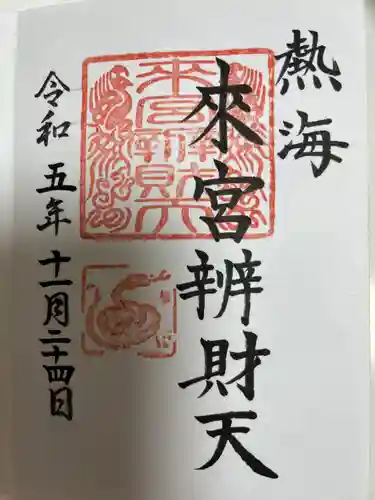 熱海
來宮辨財天
令和五年十一月二十四日
來宮辨財天